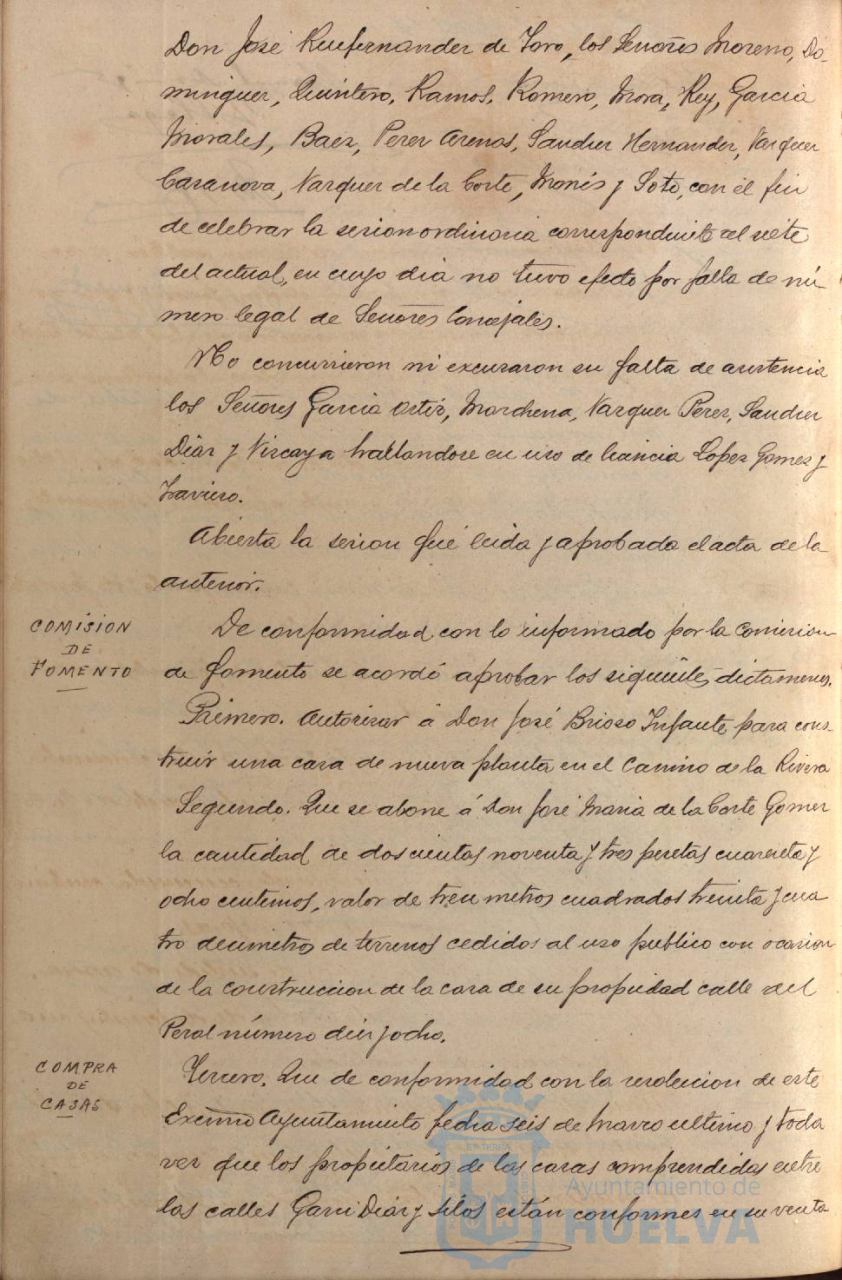 Don José Ruifernandez de Toro, los Señores Moreno, Do-
minguez, Quintero, Ramos, Romero, Mora, Rey, Garcia
Morales, Baez, Perez Arenas, Sanchez Hernandez, Vazquez
Casanova, Vazquez de la Corte, Monís y Soto, con el fin
de celebrar la sesion ordinaria correspondiente al siete
del actual, en cuyo dia no tuvo efecto por falta de nú-
mero legal de Señores Concejales.
No concurrieron ni excusaron su falta de asistencia
los Señores Garcia Ortiz, Marchena, Vazquez Perez, Sanchez
Diaz y Vizcaya hallandose en uso de licencia Lopez Gomez y
Travieso.
Abierta la sesion fué leida y aprobada el acta de la
anterior.
COMISION
DE
FOMENTO
De conformidad con lo informado por la comision
de fomento se acordó aprobar los siguientes dictamenes.
Primero. Autorizar á Don José Brioso Infante para cons-
truir una casa de nueva planta en el Camino de la Rivera
Segundo. Que se abone á Don José Maria de la Corte Gomez
la cantidad de doscientas noventa y tres pesetas cuarenta y
ocho centimos, valor de trece metros cuadrados treinta y cua
tro decimetros de terrenos cedidos al uso publico con ocasion
de la construccion de la casa de su propiedad calle del
Peral número diez y ocho.
COMPRA
DE
CASAS
Tercero. Que de conformidad con la resolucion de este
Excmo Ayuntamiento fecha seis de Marzo ultimo y toda
vez que los propietarios de las casas comprendidas entre
las calles Garci Diaz y Silos están conformes en su venta
Ayuntamiento de
HUELVA